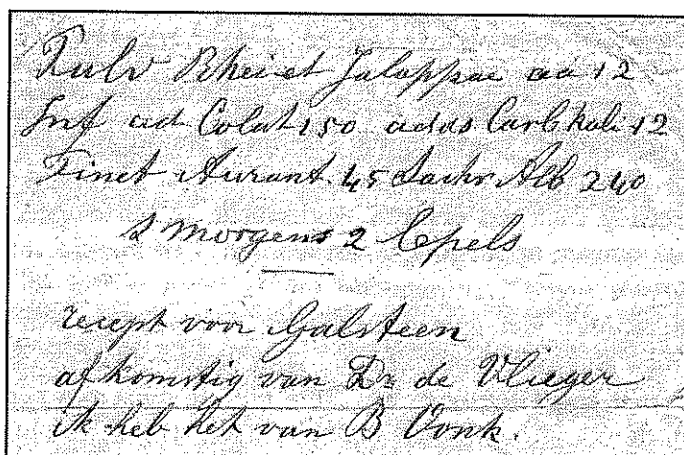 Pulv Rhei et Jalappae aa 12
Inf ad Colat 150 adds Carb kali 12
Tinct Aurant. 45 Sachr Alb 240
s morgens 2 lepels
recept voor Galsteen
afkomstig van Dr de Vlieger
ik heb het van B Vonk.